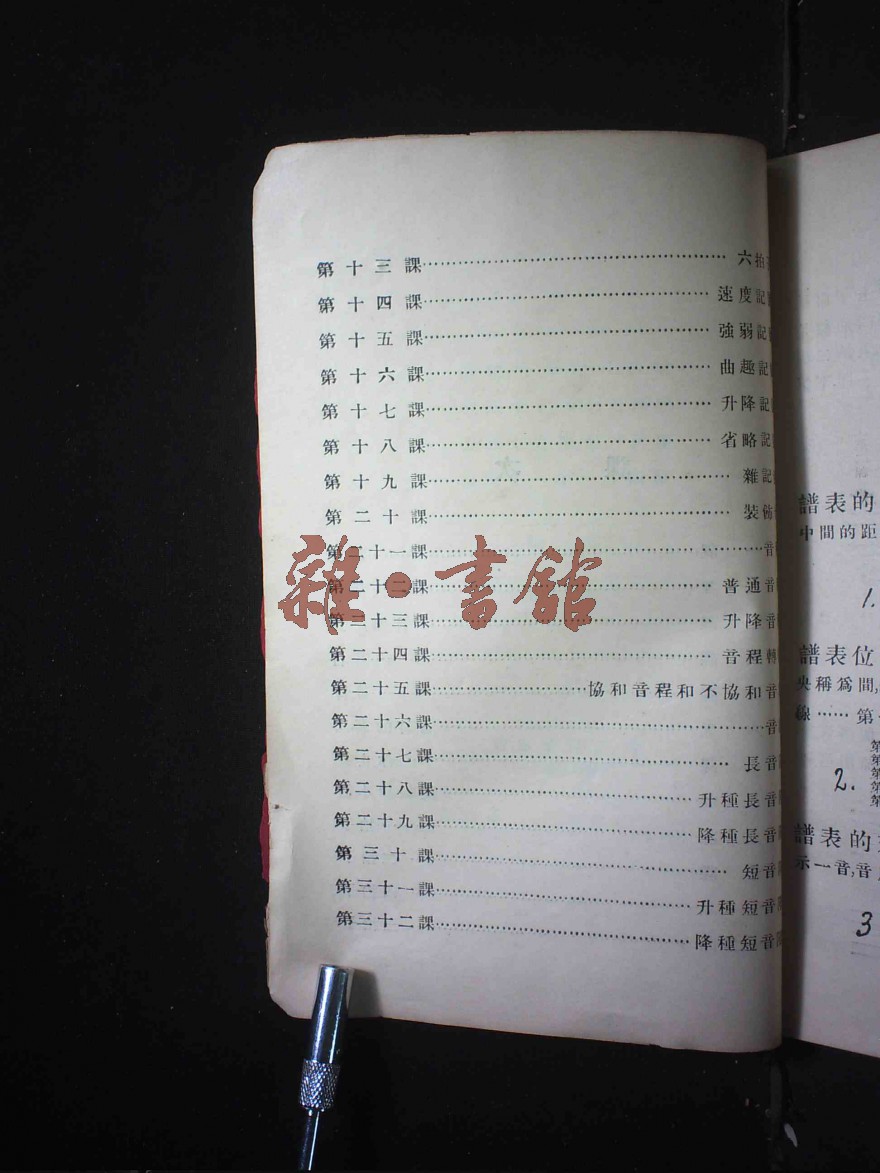 第十三課……六拍
第十四課……速度記
第十五課……強弱記
第十六課……曲趣記
第十七課……升降記
第十八課……省略記
第十九課……雜記
第二十課……裝佈
第二十一課……音
第二十二課……普通音
第二十三課……升降音
第二十四課……音程轉
第二十五課……協和音程和不協和音
第二十六課……音
第二十七課……長音
第二十八課……升種長音
第二十九課……降種長音
第三十課……短音
第三十一課……升種短音
第三十二課……降種短音
雜·書館
譜表的
中間的距
1.
譜表位
央稱爲間,
線……第
第
第
第
第
第
2.
譜表的
示一音,音
3